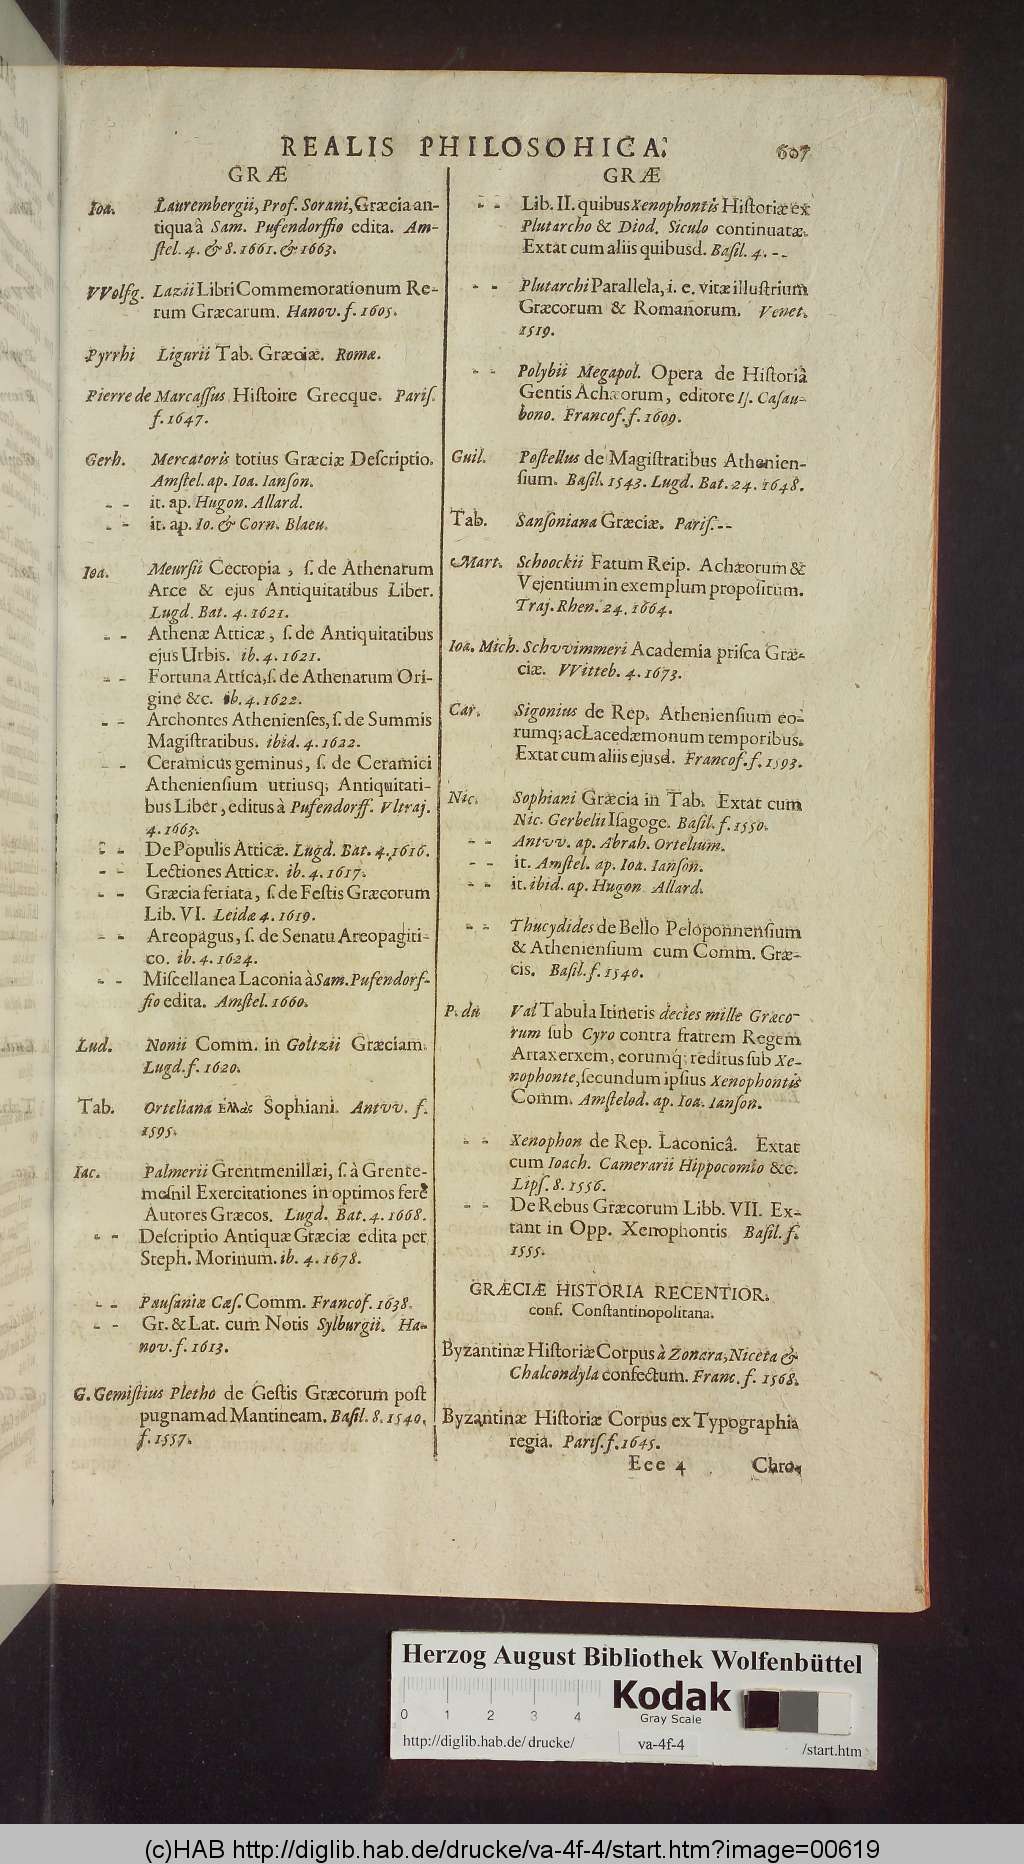 REALIS PHILOSOHICA.
607
GRÆ
Ioa. Laurembergii, Prof. Sorani, Græcia an-
tiqua â Sam. Pufendorffio edita. Am-
ſtel. 4. & 8. 1661. & 1663.
VVolfg. Lazii Libri Commemorationum Re-
rum Græcarum. Hanov. f. 1605.
Pyrrhi Ligurii Tab. Græciæ. Romæ.
Pierre de Marcaſſus Hiſtoire Grecque. Pariſ.
f. 1647.
Gerh. Mercatoris totius Græciæ Deſcriptio.
Amſtel. ap. Ioa. Ianſon.
- - it. ap. Hugon. Allard.
- - it. ap. Io. & Corn. Blaeu.
Ioa. Meurſii Cecropia, ſ. de Athenarum
Arce & ejus Antiquitatibus Liber.
Lugd. Bat. 4. 1621.
- - Athenæ Atticæ, ſ. de Antiquitatibus
ejus Urbis. ib. 4. 1621.
- - Fortuna Attica, ſ. de Athenarum Ori-
gine &c. ib. 4. 1622.
- - Archontes Athenienſes, ſ. de Summis
Magiſtratibus. ibid. 4. 1622.
- - Ceramicus geminus, ſ. de Ceramici
Athenienſium utriusq; Antiquitati-
bus Liber, editus à Pufendorff. Vltraj.
4. 1663.
- - De Populis Atticæ. Lugd. Bat. 4. 1616.
- - Lectiones Atticæ. ib. 4. 1617.
- - Græcia feriata, ſ. de Feſtis Græcorum
Lib. VI. Leidæ 4. 1619.
- - Areopagus, ſ. de Senatu Areopagiti-
co. ib. 4. 1624.
- - Miſcellanea Laconia à Sam. Pufendorf-
fio edita. Amſtel. 1660.
Lud. Nonii Comm. in Goltzii Græciam.
Lugd. f. 1620.
Tab. Orteliana Ελλάς Sophiani. Antvv. f.
1595.
Iac. Palmerii Grentmenillæi, ſ. à Grente-
meſnil Exercitationes in optimos ferè
Autores Græcos. Lugd. Bat. 4. 1668.
- - Deſcriptio Antiquæ Græciæ edita per
Steph. Morinum. ib. 4. 1678.
- - Pauſaniæ Cæſ. Comm. Francof. 1638.
- - Gr. & Lat. cum Notis Sylburgii. Ha-
nov. f. 1613.
G. Gemiſtius Pletho de Geſtis Græcorum poſt
pugnam ad Mantineam. Baſil. 8. 1540.
f. 1557.
GRÆ
- - Lib. II. quibus Xenophontis Hiſtoriæ ex
Plutarcho & Diod. Siculo continuatæ.
Extat cum aliis quibusd. Baſil. 4. - -
- - Plutarchi Parallela, i. e. vitæ illuſtrium
Græcorum & Romanorum. Venet.
1519.
- - Polybii Megapol. Opera de Hiſtoriâ
Gentis Achæorum, editore Iſ. Caſau-
bono. Francof. f. 1609.
Guil. Poſtellus de Magiſtratibus Athenien-
ſium. Baſil. 1543. Lugd. Bat. 24. 1648.
Tab. Sanſoniana Græciæ. Pariſ. - -
Mart. Schoockii Fatum Reip. Achæorum &
Vejentium in exemplum propoſitum.
Traj. Rhen. 24. 1664.
Ioa. Mich. Schvvimmeri Academia priſca Græ-
ciæ. VVitteb. 4. 1673.
Car. Sigonius de Rep. Athenienſium eo-
rumq; ac Lacedæmonum temporibus.
Extat cum aliis ejusd. Francof. f. 1593.
Nic. Sophiani Græcia in Tab. Extat cum
Nic. Gerbelii Iſagoge. Baſil. f. 1550.
- - Antvv. ap. Abrah. Ortelium.
- - it. Amſtel. ap. Ioa. Ianſon.
- - it. ibid. ap. Hugon Allard.
- - Thucydides de Bello Peloponnenſium
& Athenienſium cum Comm. Græ-
cis. Baſil. f. 1540.
P. du Val Tabula Itineris decies mille Græco-
rum ſub Cyro contra fratrem Regem
Artaxerxem, eorumq; reditus ſub Xe-
nophonte, ſecundum ipſius Xenophontis
Comm. Amſtelod. ap. Ioa. Ianſon.
- - Xenophon de Rep. Laconicâ. Extat
cum Ioach. Camerarii Hippocomio &c.
Lipſ. 8. 1556.
- - De Rebus Græcorum Libb. VII. Ex-
tant in Opp. Xenophontis Baſil. f.
1555.
GRÆCIÆ HISTORIA RECENTIOR.
conf. Conſtantinopolitana.
Byzantinæ Hiſtoriæ Corpus à Zonara, Niceta &
Chalcondyla confectum. Franc. f. 1568.
Byzantinæ Hiſtoriæ Corpus ex Typographia
regia. Pariſ. f. 1645.
Eee 4
Chro-
Herzog August Bibliothek Wolfenbüttel
0 1 2 3 4
Kodak
Gray Scale
http://diglib.hab.de/drucke/
va-4f-4
/start.htm
(c)HAB http://diglib.hab.de/drucke/va-4f-4/start.htm?image=00619